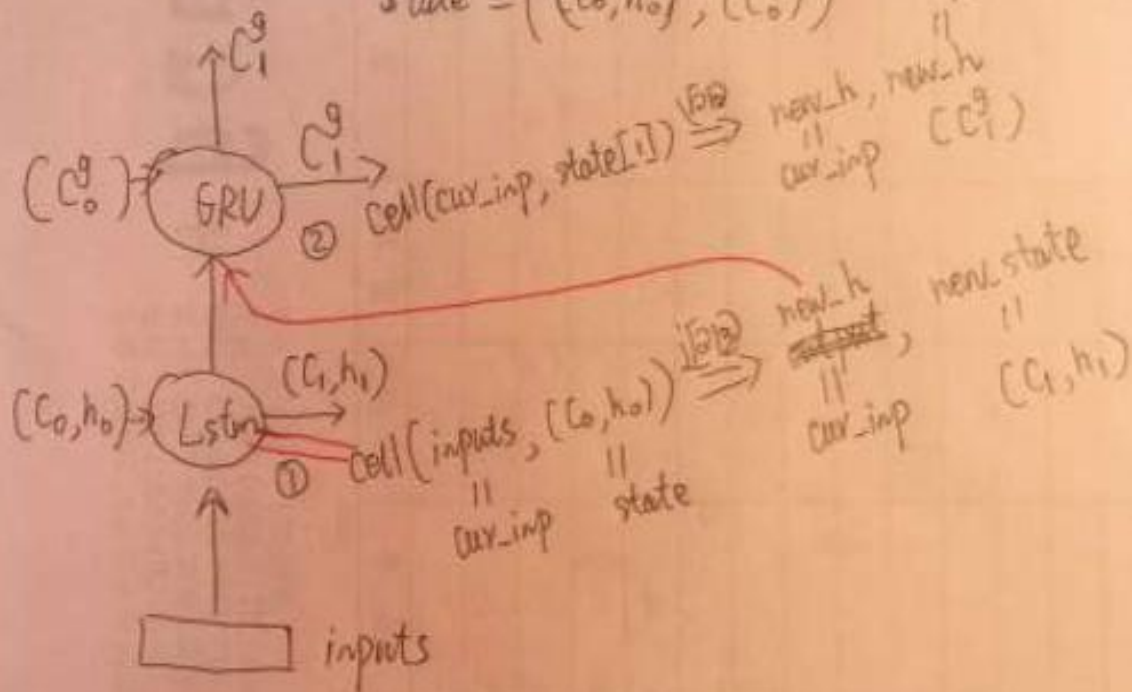 state = ((C₀,h₀), (C₀))
C₁ᵍ
(C₀ᵍ) GRU C₁ᵍ
② cell(cur_inp, state[1]) 返回 ⇒ new_h, new_h
= cur_inp (C₁ᵍ)
(C₀,h₀) Lstm (C₁,h₁)
① cell(inputs, (C₀,h₀)) 返回 ⇒ new_h, new_state
= cur_inp = state = cur_inp = (C₁,h₁)
inputs